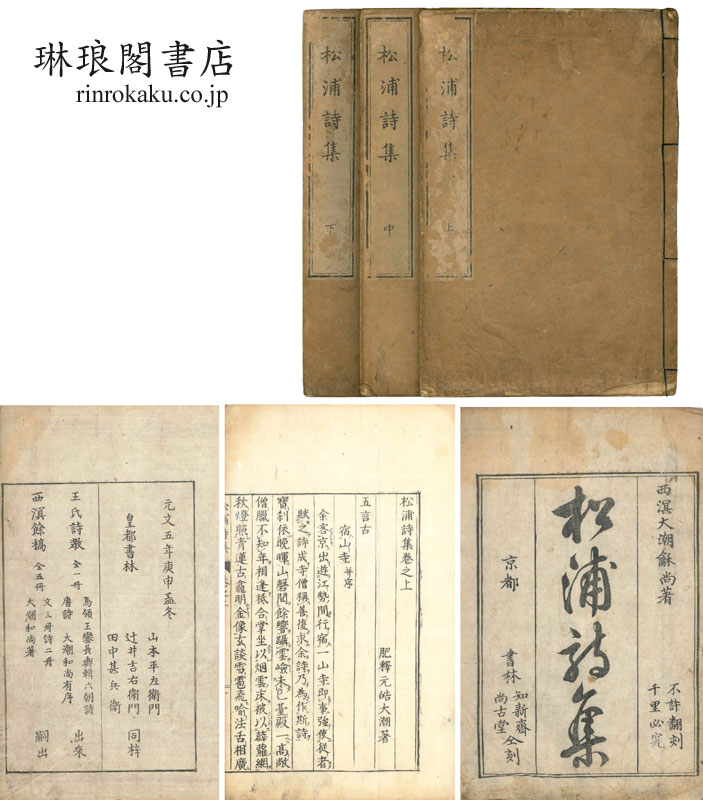 琳琅閣書店
rinrokaku.co.jp
松浦詩集 上
松浦詩集 中
松浦詩集 下
西溟大潮龢尚著
松浦詩集
京都
書林 知新齋
尚古堂 仝刻
不許翻刻
千里必究
松浦詩集卷之上
肥釋元皓大潮著
五言古
宿山寺 并序
余客京出遊江勢間行宿一山寺即事強使從者
賦之詩成寺僧稱善復求余詩乃為作斯詩
寶刹依晩暉山磬聞餘響躡雲嶮未已臺殿一高敞
僧臘不知年相逢祗合掌坐以烟雲床被以薜蘿網
秋燈照青蓮古龕明金像玄談雪霰飛喻法舌相廣
元文五年庚申孟冬
皇都書林
山本平左衛門
辻井吉右衛門 同梓
田中甚兵衛
王氏詩敎 全一冊
馬領王鑾長輿輯六朝詩
唐詩 大潮和尚有序 出來
西溟餘稿 全五冊
文三冊詩二冊
大潮和尚著 嗣出